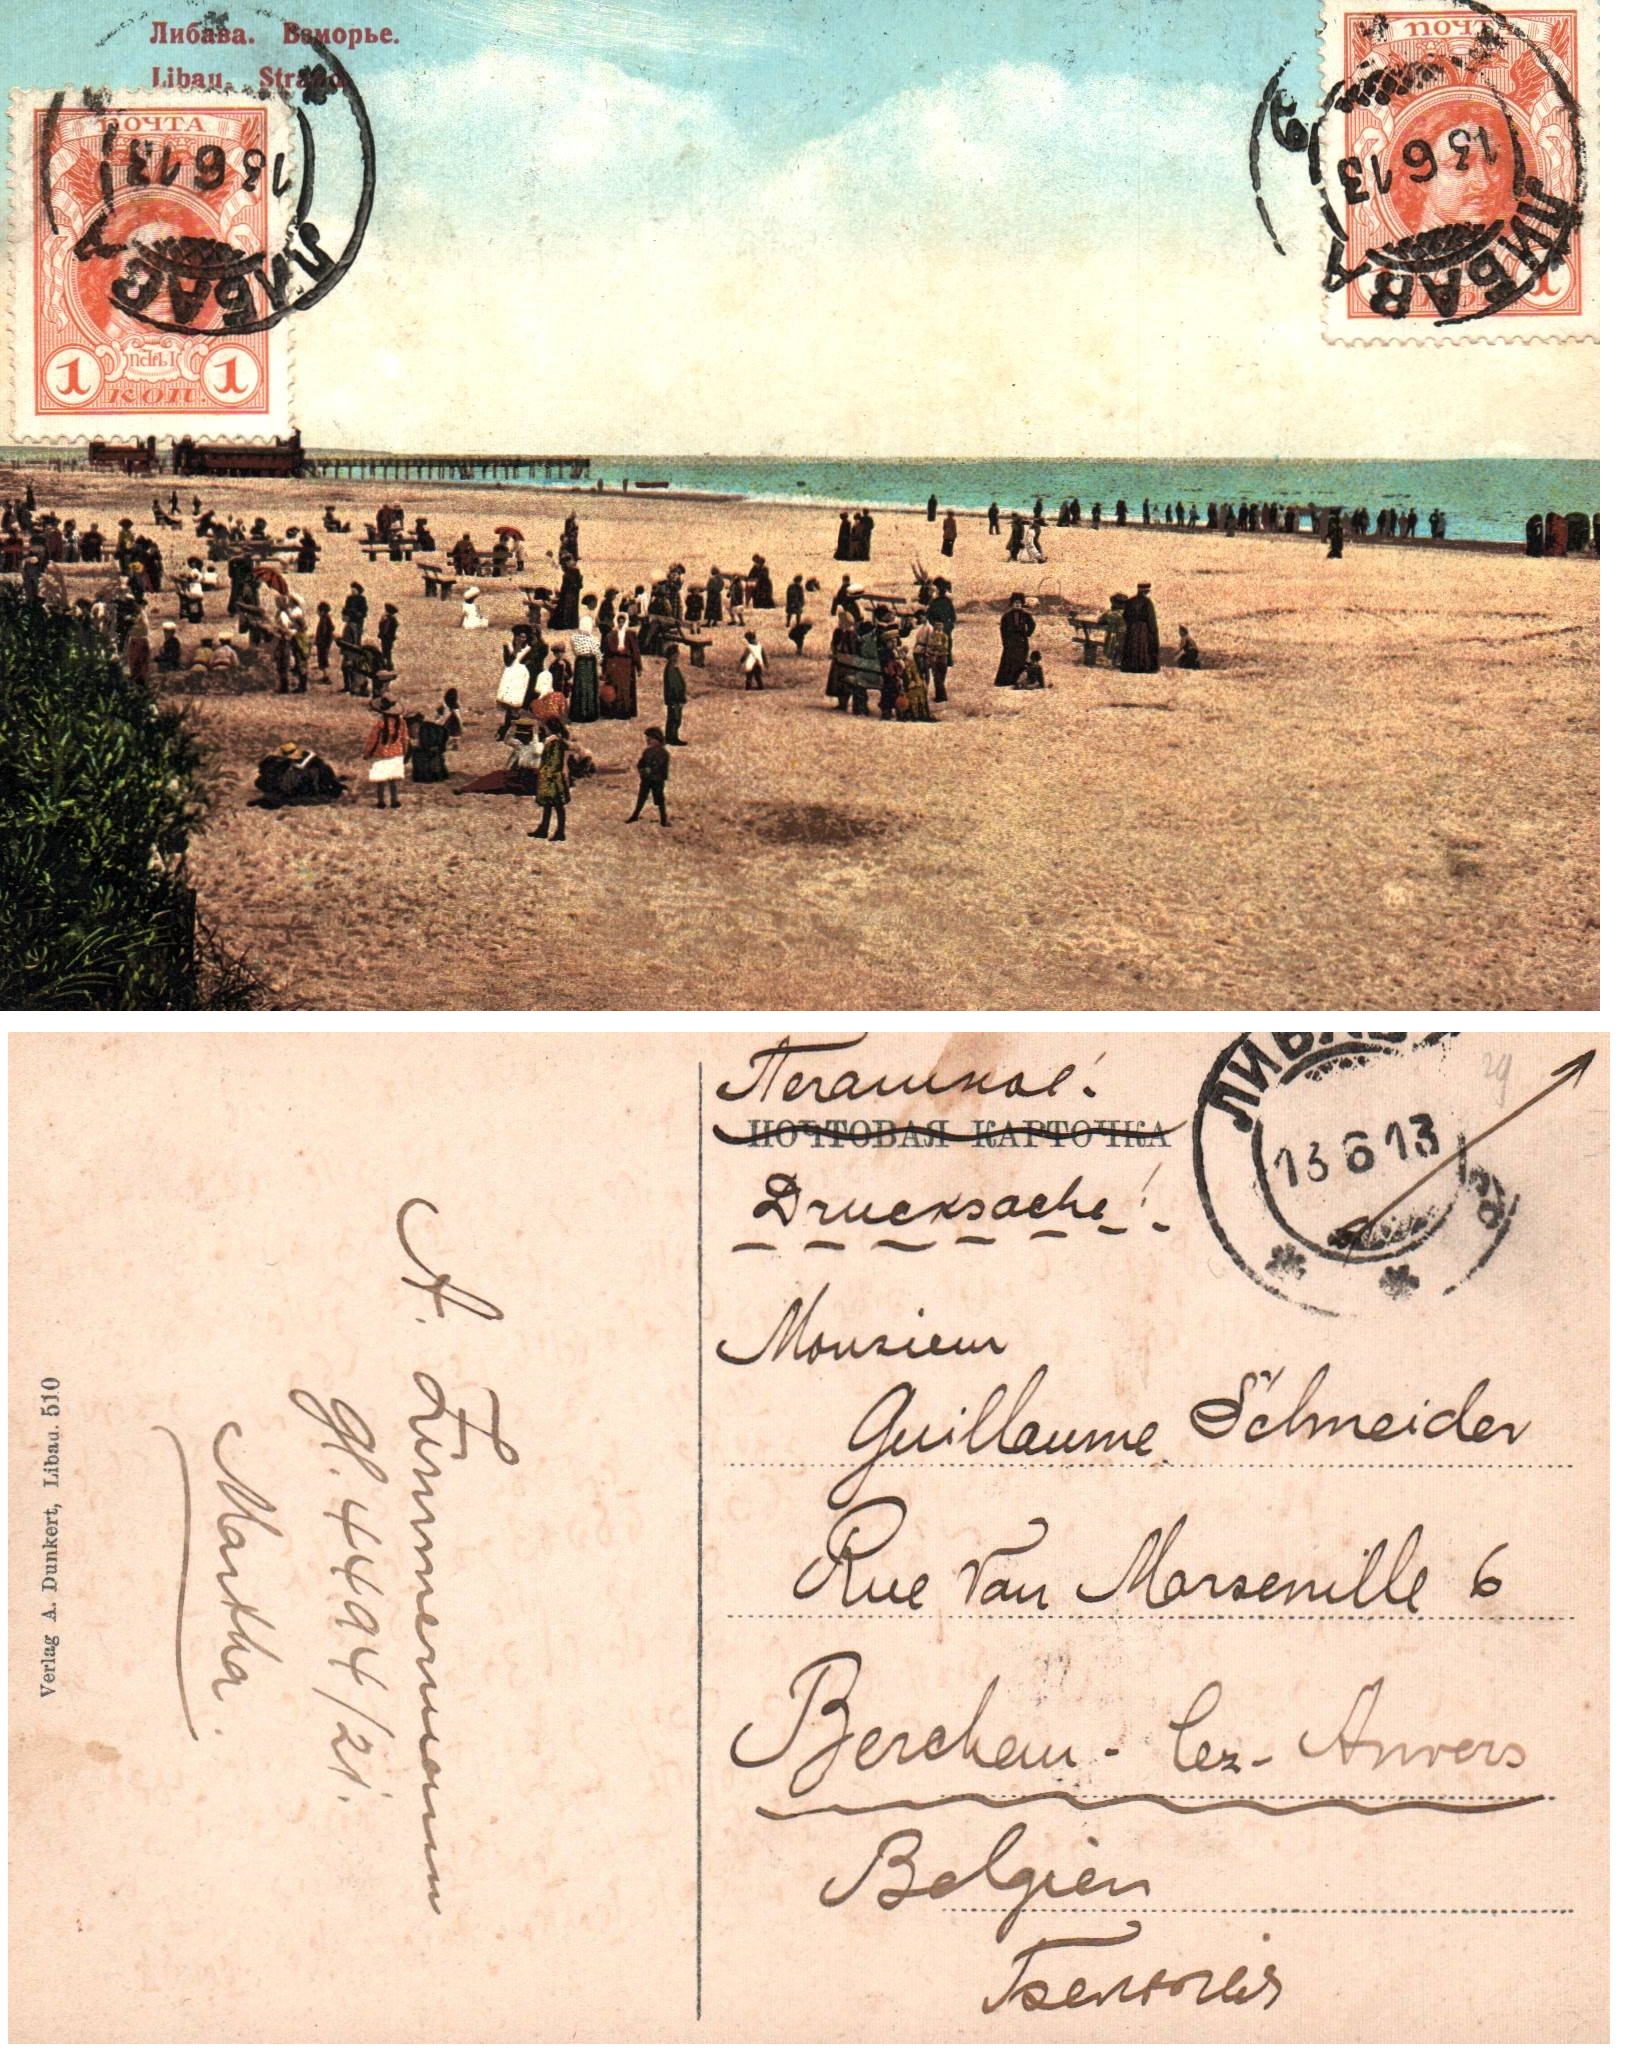 Либава. Взморье.
Libau. Strand.
ПОЧТА
13 6 13
ЛИБАВА
1 1
КОП.
ПОЧТА
13 6 13
ЛИБАВА
1
ПОЧТОВАЯ КАРТОЧКА
Drucksache!
ЛИБАВА
13 6 13
Monsieur
Guillaume Schneider
Rue Van Marsenille 6
Berchem-lez-Anvers
Belgien
Бельгия
A. Zimmermann
Martha.
Verlag A. Dunkert, Libau. 510